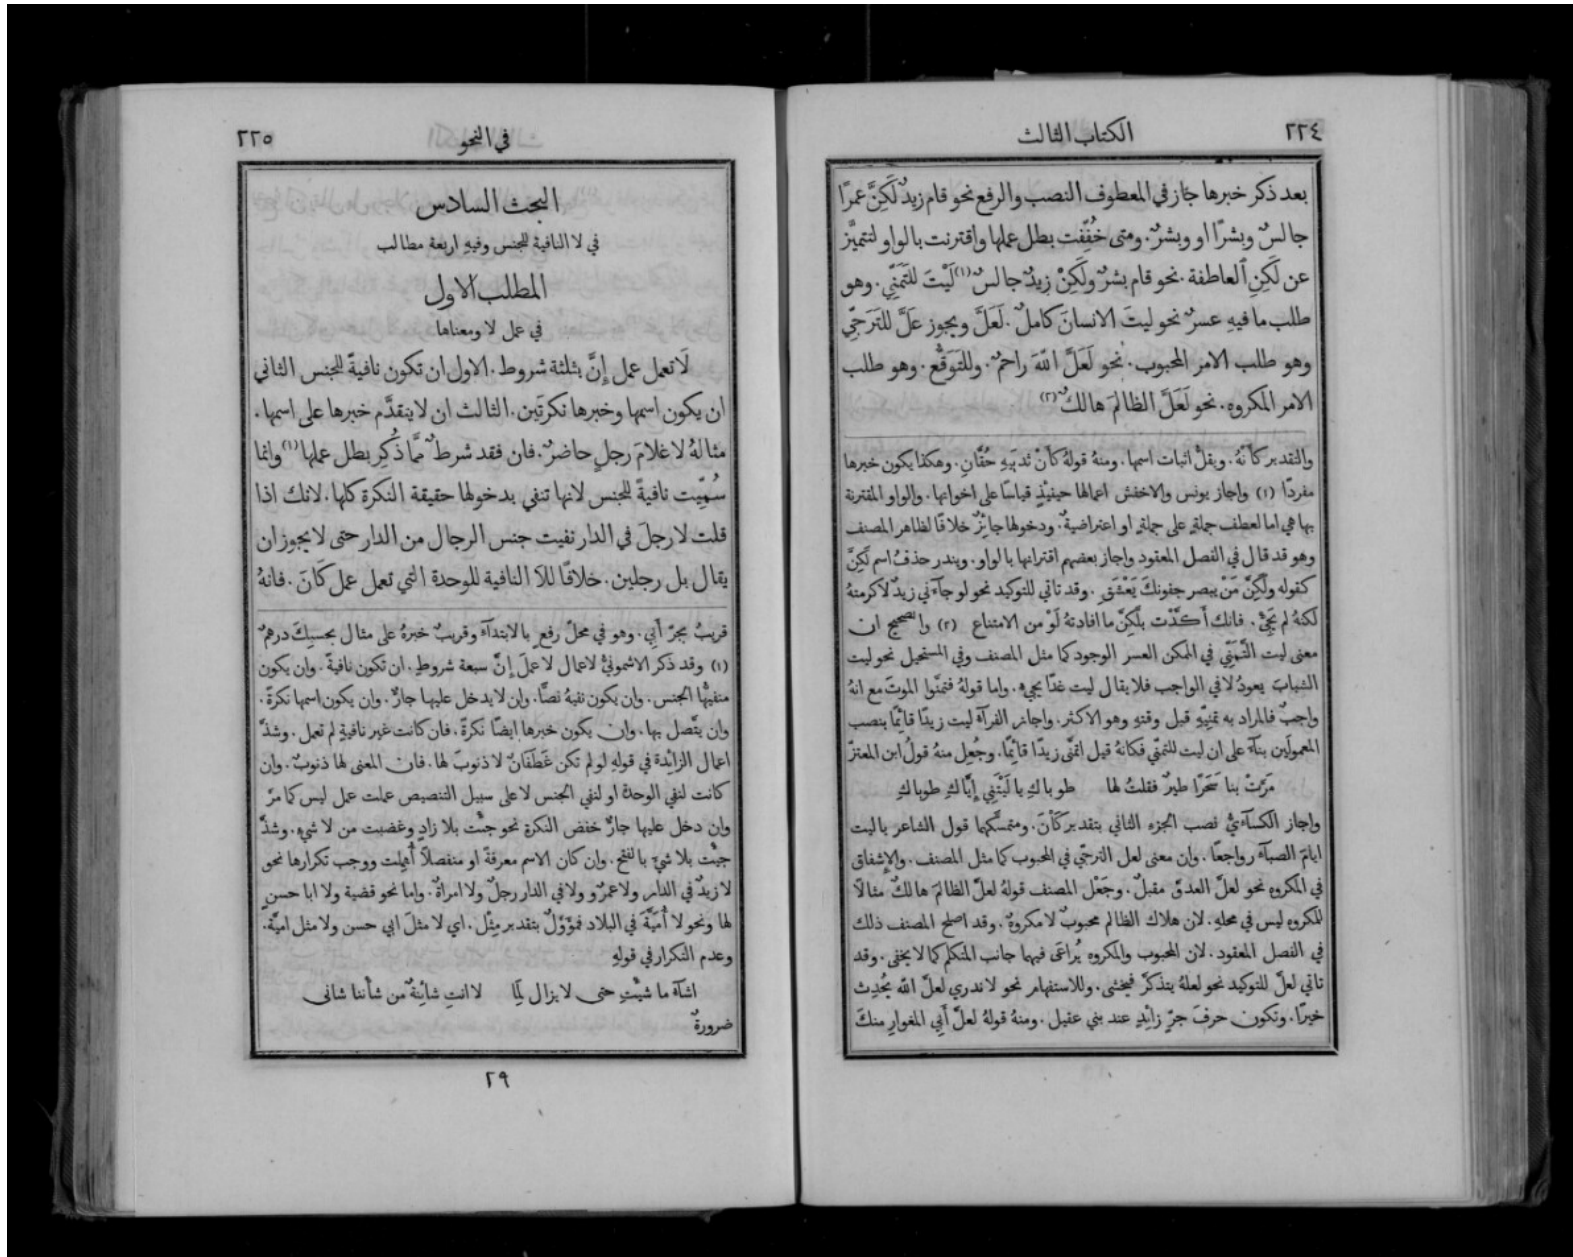 ٢٢٤
الكتاب الثالث
بعد ذكر خبرها جاز في المعطوف النصب والرفع نحو قام زيدٌ لَكِنَّ عمرًا
جالسٌ وبشرًا او وبشرٌ. ومتى خُفِّفت بطل عملها واقترنت بالواو لتتميَّز
عن لَكِنِ ٱلعاطفة. نحو قام بشرٌ ولَكِنْ زيدٌ جالسٌ (١) لَيْتَ للتَمَنِّي. وهو
طلب ما فيهِ عسرٌ نحو ليتَ الانسانَ كاملٌ. لَعَلَّ ويجوز عَلَّ للتَرَجِّي
وهو طلب الامر المحبوب. نحو لَعَلَّ اللهَ راحمٌ. وللتوَقُّع. وهو طلب
الامر المكروه. نحو لَعَلَّ الظالمَ هالكٌ (٢)
والتقدير كأنهُ. ويقلُّ اثبات اسمها. ومنهُ قولهُ كأنْ ثديَيهِ حُقَّانِ. وهكذا يكون خبرها
مفردًا (١) واجاز يونس والاخفش اعمالها حينئذٍ قياسًا على اخواتها. والواو المقترنة
بها هي اما لعطف جملةٍ على جملةٍ او اعتراضيةٌ. ودخولها جائزٌ خلافًا لظاهر المصنف
وهو قد قال في الفصل المعقود واجاز بعضهم اقترانها بالواو. ويندر حذفُ اسم لَكِنَّ
كقوله ولَكِنَّ مَنْ يبصر جفونكَ يَعْشَقِ. وقد تاتي للتوكيد نحو لو جآءني زيدٌ لاكرمتهُ
لكنهُ لم يَجِئْ. فانك أكَّدْت بلَكِنَّ ما افادتهُ لَوْ من الامتناع (٢) والصحيح ان
معنى ليت التَّمَنِّي في الممكن العسر الوجود كما مثل المصنف وفي المستحيل نحو ليت
الشبابَ يعودُ لا في الواجب فلا يقال ليت غدًا يجيء. واما قولهُ فتمنَّوا الموتَ مع انهُ
واجبٌ فالمراد به تمنِّيهِ قبل وقتهِ وهو الاكثر. واجاز الفرآءُ ليت زيدًا قائمًا بنصب
المعمولَين بنآءً على ان ليت للتمنِّي فكانهُ قيل اتمنَّى زيدًا قائمًا. وجُعِل منهُ قولُ ابن المعتزّ
مَرَّتْ بنا سَحَرًا طيرٌ فقلتُ لها طوباكِ يا لَيْتَنِي إِيَّاكِ طوباكِ
واجاز الكسآءيُّ نصب الجزء الثاني بتقدير كَأنَ. ومتمسَّكهما قول الشاعر يا ليت
ايامَ الصبآءِ رواجعًا. وان معنى لعل الترجّي في المحبوب كما مثل المصنف. والإِشفاق
في المكروه نحو لعلَّ العدوَّ مقبلٌ. وجَعْل المصنف قولهُ لعلَّ الظالمَ هالكٌ مثالًا
للمكروه ليس في محلهِ. لان هلاك الظالم محبوبٌ لا مكروهٌ. وقد اصلح المصنف ذلك
في الفصل المعقود. لان المحبوب والمكروه يُراعَى فيهما جانب المتكلم كما لا يخفى. وقد
تاتي لعلَّ للتوكيد نحو لعلهُ يتذكَّر فيخشى. وللاستفهام نحو لا ندري لعلَّ اللهَ يُحدِث
خيرًا. وتكون حرفَ جرٍّ زائدٍ عند بني عقيل. ومنهُ قولهُ لعلَّ أبِي المغوارِ منكَ
٢٢٥
في النحو
البحث السادس
في لا النافية للجنس وفيهِ اربعة مطالب
المطلب الاول
في عمل لا ومعناها
لَا تعمل عمل إِنَّ بثلثة شروط. الاول ان تكون نافيةً للجنس الثاني
ان يكون اسمها وخبرها نكرتَين. الثالث ان لا يتقدَّم خبرها على اسمها.
مثالهُ لا غلامَ رجلٍ حاضرٌ. فان فقد شرطٌ ممَّا ذُكِر بطل عملها (١) وانما
سُمِّيت نافيةً للجنس لانها تنفي بدخولها حقيقة النكرة كلها. لانك اذا
قلت لا رجلَ في الدار نفيت جنس الرجال من الدار حتى لا يجوز ان
يقال بل رجلين. خلافًا للَا النافية للوحدة التي تعمل عمل كَانَ. فانهُ
قريبُ بجرّ أبي. وهو في محلّ رفعٍ بالابتدآءِ وقريبٌ خبرهُ على مثال بحسبِكَ درهمٌ
(١) وقد ذكر الاشمونيُّ لاعمال لا عملَ إِنَّ سبعة شروطٍ. ان تكون نافيةً. وان يكون
منفيُّها الجنس. وان يكون نفيهُ نصًّا. وان لا يدخل عليها جارٌّ. وان يكون اسمها نكرةً.
وان يتَّصل بها. وان يكون خبرها ايضًا نكرةً. فان كانت غير نافيةٍ لم تعمل. وشذَّ
اعمال الزائدة في قولهِ لو لم تكن غَطَفَانٌ لا ذنوبَ لها. فان المعنى لها ذنوبٌ. وان
كانت لنفي الوحدة او لنفي الجنس لا على سبيل التنصيص عملت عمل ليس كما مرّ
وان دخل عليها جارٌّ خفض النكرة نحو جئت بلا زادٍ وغضبت من لا شيءٍ. وشذَّ
جئت بلا شيءَ بالفتح. وان كان الاسم معرفةً او منفصلًا أُهمِلت ووجب تكرارها نحو
لا زيدٌ في الدار ولا عمرٌو ولا في الدار رجلٌ ولا امراةٌ. واما نحو قضية ولا ابا حسنٍ
لها ونحو لا أُمَيَّةَ في البلاد فموَّوَلٌ بتقدير مِثْل. اي لا مثلَ ابي حسن ولا مثل اميَّة.
وعدم التكرار في قولهِ
اشآءُ ما شئتِ حتى لا يزال لِمَا لا انتِ شائِيةٌ من شأننا شانى
ضرورةٌ
٢٩